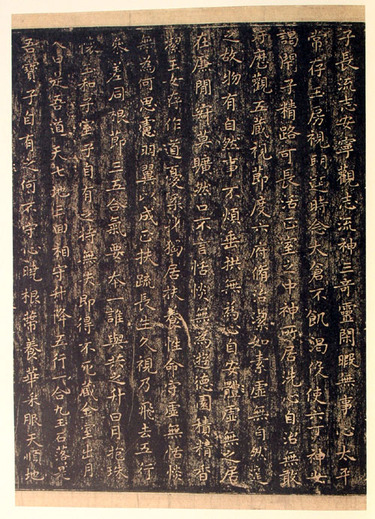 子長流志安寧觀志流神三奇靈閑暇無事心太平
常存玉房視明達時念大倉不飢渴役使六丁神女
謁閉子精路可長活正室之中神所居洗心自治無敢
汙歷觀五藏視節度六府修治潔如素虛無自然道
之故物有自然事不煩垂拱無為心自安體虛無之居
在廉間寂莫曠然口不言恬惔無為遊德園積精香
潔玉女存作道憂柔身獨居扶養性命守虛無恬惔
無為何思慮羽翼以成正扶疏長生久視乃飛去五行
參差同根節三五合氣要本一誰與共之升日月抱珠
懷玉和子室子自有之持無失即得不死藏金室出月
入日是吾道天七地三回相守升降五行一合九玉石落落是
吾寶子自有之何不守心曉根蔕養華采服天順地